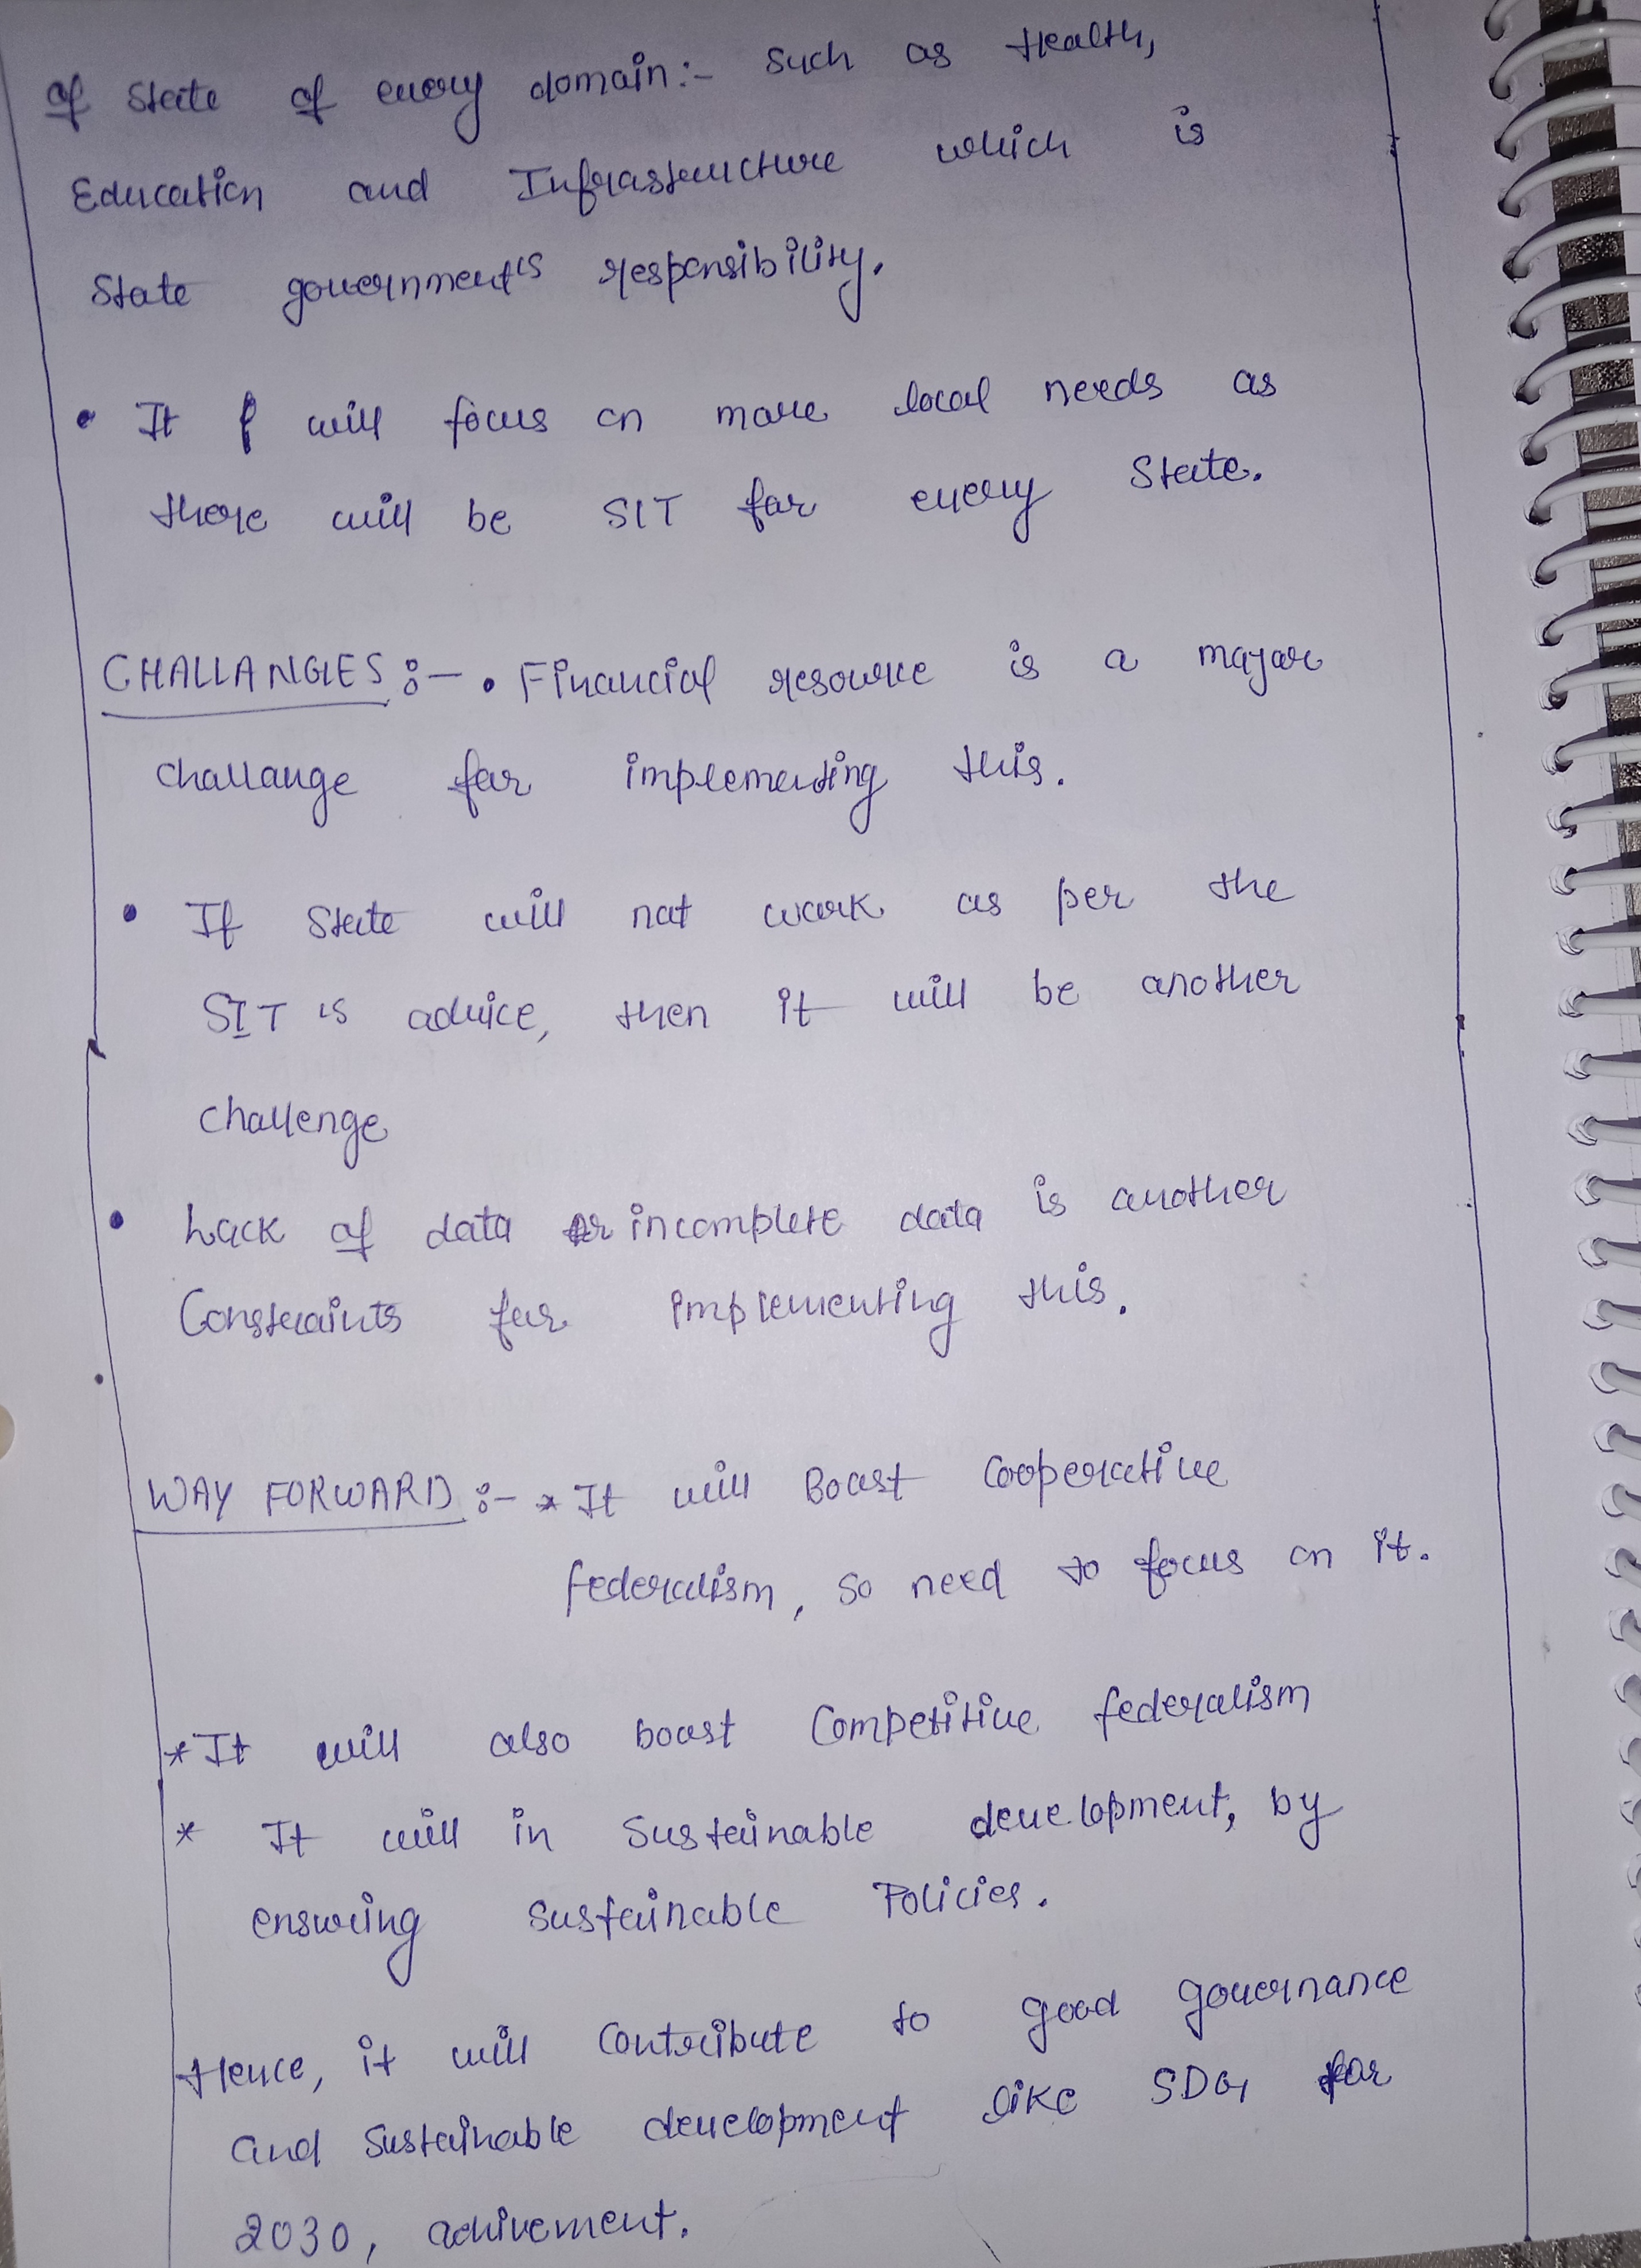 of state of every domain:- such as Health,
Education and Infrastructure which is
State government's responsibility.
• It will focus on more local needs as
there will be SIT for every State.
CHALLANGES :- • Financial resource is a major
challange for implementing this.
• If State will not work as per the
SIT's advice, then it will be another
challenge
• Lack of data or incomplete data is another
Constraints for implementing this.
WAY FORWARD :- * It will Boost Cooperative
federalism, so need to focus on it.
* It will also boost Competitive federalism
* It will in Sustainable development, by
ensuring sustainable Policies.
Hence, it will Contribute to good governance
and Sustainable development like SDG, for
2030, achivement.